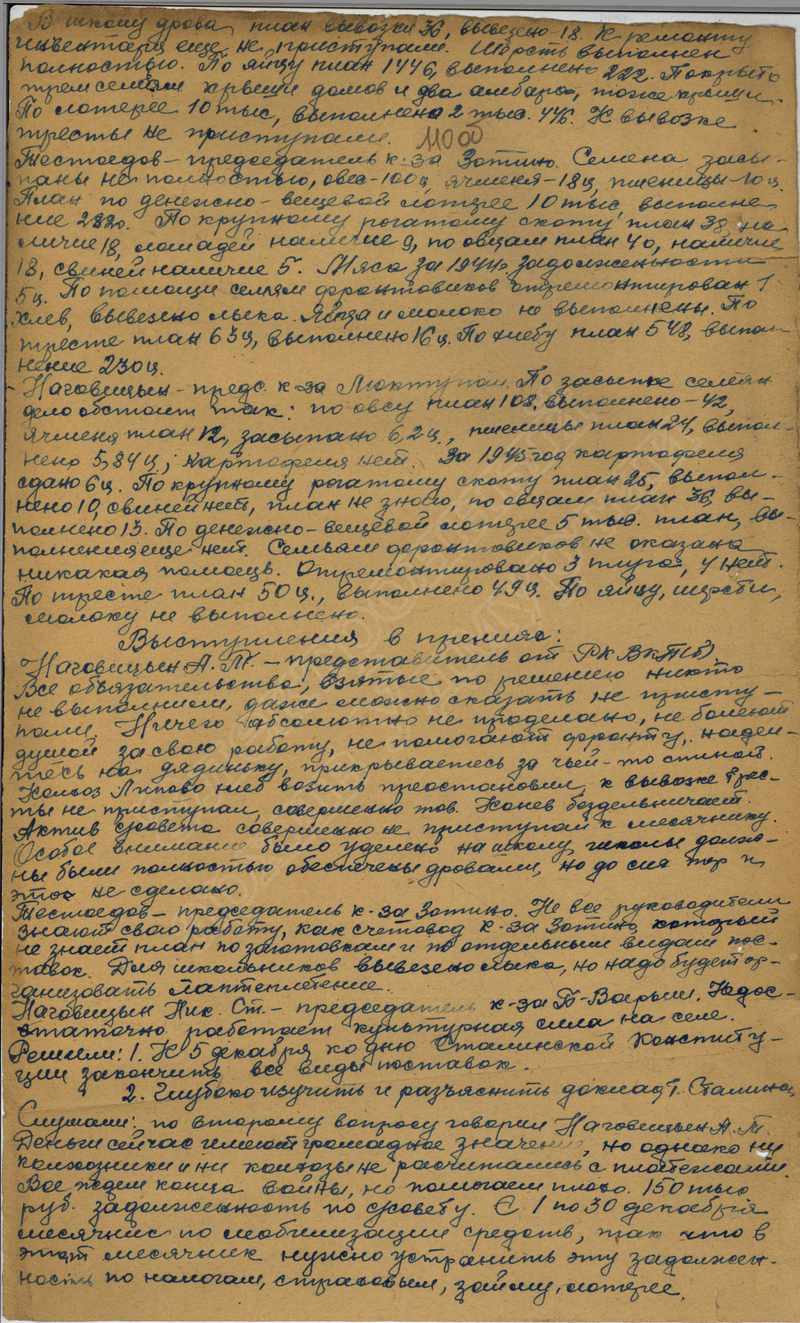 В школу дрова, план вывозки 36, вывезено 18. К ремонту
инвентаря еще не приступали. Шерсть выполнен
полностью. По яйцу план 1446, выполнено 222. Покрыто
трем семьям крыши домов и два амбара, тоже крыши.
По лотерее 10 тыс, выполнено 2 тыс. К вывозке
тресты не приступали. 11000
Тестоедов – председатель к-за Зотино. Семена засы-
паны не полностью, овес-100ц, ячменя-18ц, пшеницы-10ц.
План по денежно-вещевой лотерее 10 тыс, выполне
ние 2820. По крупному рогатому скоту план 38, на
личие 18, лошадей наличие 9, по овцам план 40, наличие
18, свиней наличие 5. Мяса за 1944г. задолженности
5ц. По помощи семьям фронтовиков отремонтирован 1
хлев, вывезено лыка. Яйца и молоко не выполнены. По
тресте план 63ц, выполнено 16ц. По хлебу план 548, выпол-
нение 230ц.
Наговицын – предс. к-за По засыпке семян
дело обстоит так: по овсу план 108, выполнено-42,
ячменя план 12, засыпано 6,2ц., пшеницы план 24, выпол-
нено 5,84ц; картофеля нет. За 1945 год картофеля
сдано 6ц. По крупному рогатому скоту план 25, выпол-
нено 10, свиней нет, план не знаю, по овцам план 36, вы-
полнено 13. По денежно-вещевой лотерее 5 тыс. план, вы-
полнения еще нет. Семьям фронтовиков не оказана
никакая помощь. Отремонтировано 3 плуга, 4 нет.
По тресте план 50ц., выполнено 49ц. По яйцу, шерсти,
молоку не выполнено.
Выступления в прениях:
Наговицын А.Т. – представитель от РК ВКП(б)
Все обязательства, взятые по решению никто
не выполнил, даже можно сказать не присту-
пали, Ничего абсолютно не проделано, не болеют
душой за свою работу, не помогают фронту, надее-
тесь на дядиньку, прикрываетесь за чьей-то спиной.
Колхоз Липово хлеб возить преостановил, к вывозке трес-
ты не приступал, совершенно тов. Конев бездельничает.
Актив с/совета совершенно не приступал к месячнику.
Особое внимание было уделено на школу, школы долж-
ны были полностью обеспечены дровами, но до сих пор и
это не сделано.
Тестоедов – председатель к-за Зотино. Не все руководители
знают свою работу, как счетовод к-за Зотино, который
не знает план по заготовкам и по отдельным видам пос-
тавок. Для школьников вывезено лыка, но надо будет ор-
ганизовать лаптеплетение.
Наговицын Ник. Ст. – председатель к-за Б-Варыж. Недос-
таточно работает культурная сила на селе.
Решили: 1. К 5 декабря ко дню Сталинской Конститу-
ции закончить все виды поставок.
2. Глубоко изучить и разъяснить доклад т. Сталина.
Слушали: по второму вопросу говорил Наговицын А.Т.
Деньги сейчас имеют громадное значение, но однако ни
колхозники и ни колхозы не расчитались с платежами.
Все ждем конца войны, но помогаем плохо. 150 тыс
руб. задолженность по с/совету. С 1 по 30 декабря
месячник по мобилизации средств, так что в
этот месячник нужно устранить эту задолжен-
ность по налогам, страховым, займу, лотерее.